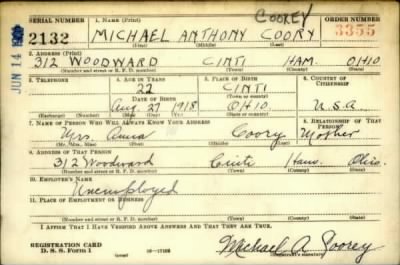 SERIAL NUMBER 1. NAME (Print) COOREY ORDER NUMBER
2132 MICHAEL ANTHONY COORY 3355
(First) (Middle) (Last)
2. ADDRESS (Print)
312 WOODWARD CINTI HAM. OHIO
(Number and street or R. F. D. number) (Town) (County) (State)
3. TELEPHONE 4. AGE IN YEARS 5. PLACE OF BIRTH 6. COUNTRY OF CITIZENSHIP
22 CINTI
(Town or county)
DATE OF BIRTH
Aug. 27 1918 OHIO U.S.A
(Exchange) (No.) (Mo.) (Day) (Yr.) (State or country)
7. NAME OF PERSON WHO WILL ALWAYS KNOW YOUR ADDRESS 8. RELATIONSHIP OF THAT PERSON
Mrs. Anna Coory Mother
(Mr., Mrs., Miss) (First) (Middle) (Last)
9. ADDRESS OF THAT PERSON
312 Woodward Cinti Ham. Ohio.
(Number and street or R. F. D. number) (Town) (County) (State)
10. EMPLOYER'S NAME
Unemployed
11. PLACE OF EMPLOYMENT OR BUSINESS
(Number and street or R. F. D. number) (Town) (County) (State)
I AFFIRM THAT I HAVE VERIFIED ABOVE ANSWERS AND THAT THEY ARE TRUE.
REGISTRATION CARD
D. S. S. Form 1 Michael A Coorey
(Registrant's signature)
JUN 14